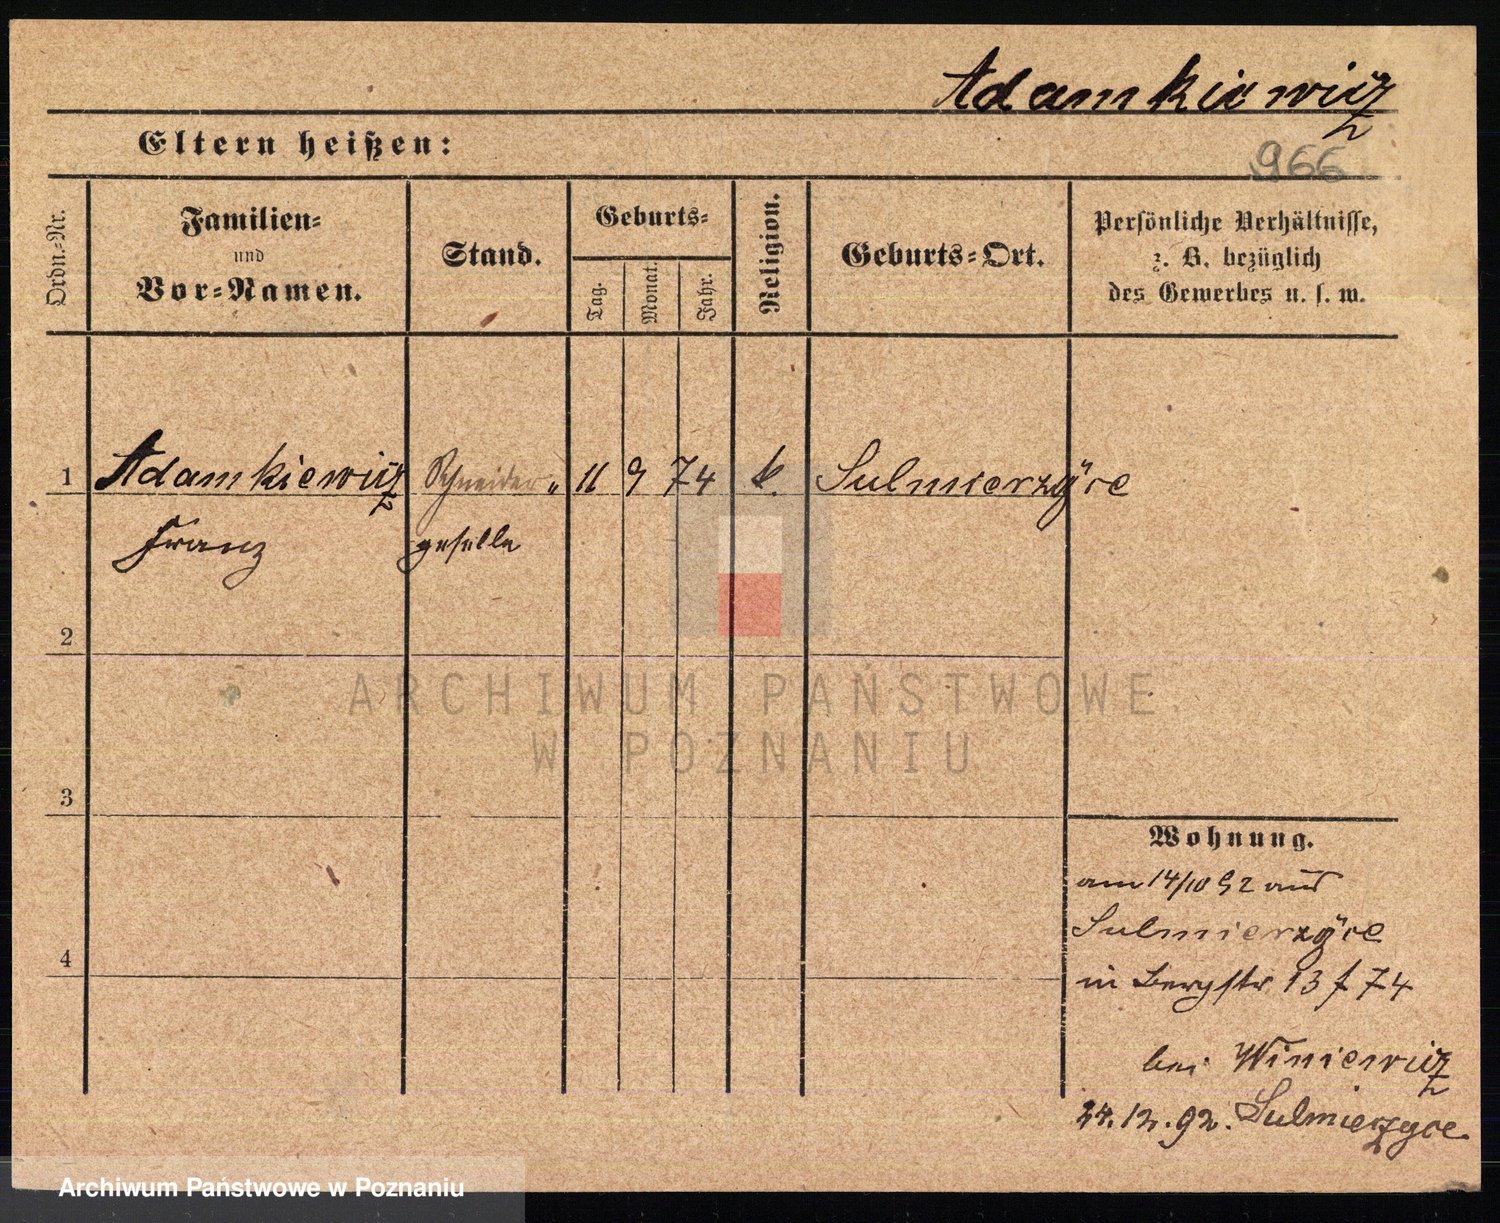 Adamkiewicz
Eltern heißen:
966
Ordn.-Nr.
Familien-
und
Vor-Namen.
Stand.
Geburts-
Tag.
Monat.
Jahr.
Religion.
Geburts-Ort.
Persönliche Verhältnisse,
z. B. bezüglich
des Gewerbes u. s. w.
1 Adamkiewicz Schneider- 11 9 74 k. Sulmierzÿce
Franz geselle
2
ARCHIWUM PAŃSTWOWE
W POZNANIU
3
Wohnung.
am 14/10 92 aus
Sulmierzÿce
4
in Bergstr 13 f 74
bei Winiewicz
24.12.92. Sulmierzyce
Archiwum Państwowe w Poznaniu